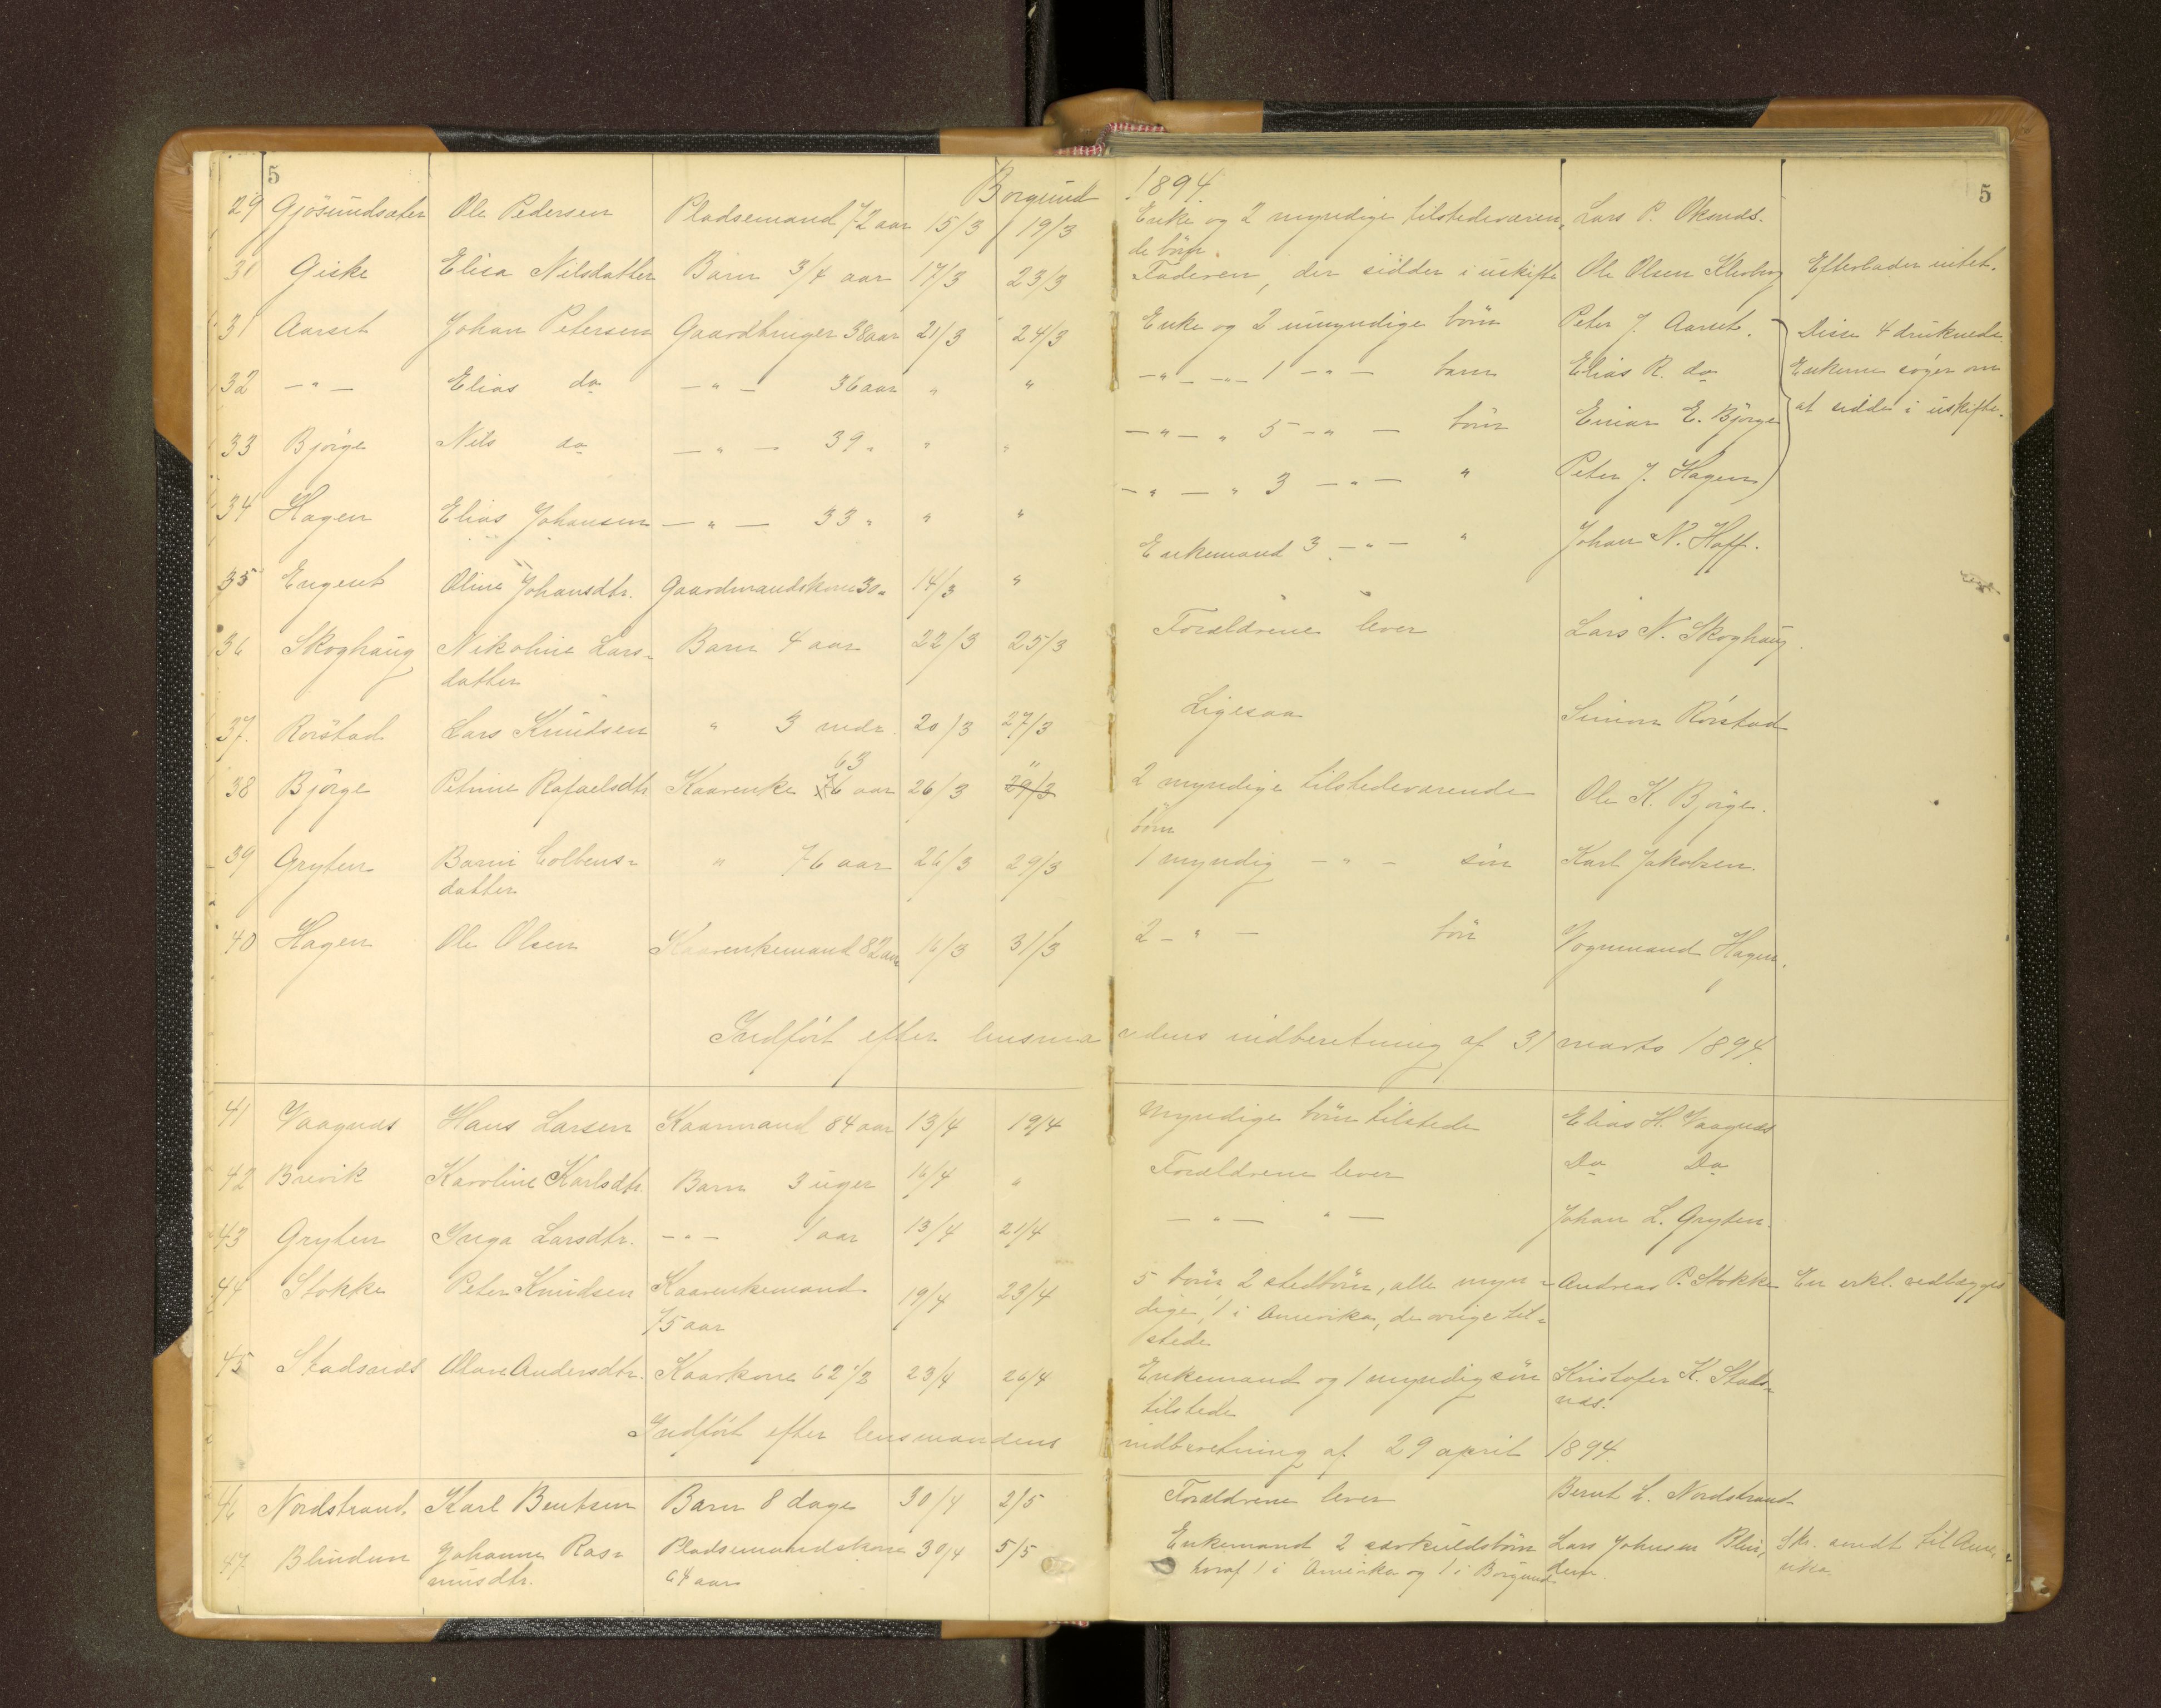 5
Borgund 1894.
5
29 Gjösundsæter Ole Pedersen Pladsemand 72 aar 15/3 19/3 Enke og 2 myndige tilstedeværen- Lars P. Oksnes.
de börn.
31 Giske Elisa Nilsdatter Barn 3/4 aar 17/3 23/3 Faderen, der sidder i uskifte Ole Olsen Efterlader intet.
31 Aarset Johan Petersen Gaardbruger 38 aar 21/3 24/3 Enke og 2 umyndige börn Peter J. Aarset. Disse 4 druknede
32 — " — Elias do — " — 36 aar " " — " — — " — 1 — " — barn Elias R. do Enkerne söger om
33 Björge Nils do — " — 39 " " " — " — " 5 — " — börn Einar E. Björge at sidde i uskifte.
34 Hagen Elias Johansen — " — 33 " " " — " — " 3 — " — " Peter J. Hagen
35 Engeset Oline Johansdtr. Gaardmandskone 30 " 14/3 " Enkemand 3 — " — " Johan N. Hoff.
36 Skoghaug Nikoline Lars- Barn 4 aar 22/3 25/3 Forældrene lever Lars N. Skoghaug.
datter
37. Rörstad Lars Knudsen " 3 mdr. 20/3 27/3 Ligesaa Simon Rörstad
63 "
38 Björge Petrine Rafaelsdtr. Kaarenke 76 aar 26/3 29/3 2 myndige tilstedeværende Ole K. Björge.
börn
39 Gryten Barni Colbens- " 76 aar 26/3 29/3 1 myndig — " — sön Karl Jakobsen.
datter
40 Hagen Ole Olsen Kaarenkemand 82 aar 16/3 31/3 2 — " — börn Vognmand Hagen.
Indfört efter lensmandens indberetning af 31 marts 1894.
41 Vaagnæs Hans Larsen Kaarmand 84 aar 13/4 19/4 Myndige börn tilstede Elias H. Vaagnæs
42 Brevik Karoline Karlsdtr. Barn 3 uger 16/4 " Forældrene lever Do Do
43 Gryten Inga Larsdtr. — " — 1 aar 13/4 21/4 — " — " — Johan L. Gryten.
44 Stokke Peter Knudsen Kaarenkemand 19/4 23/4 5 börn 2 stedbörn, alle myn- Andreas P. Stokke En erkl. vedlægges
75 aar dige, 1 i Amerika, de övrige til-
stede
45 Stadsnæs Olave Andersdtr. Kaarkone 62 1/2 23/4 26/4 Enkemand og 1 myndig sön Kristofer K. Stads-
tilstede næs.
Indfört efter lensmandens indberetning af 29 april 1894.
46 Nordstrand. Karl Berntsen Barn 8 dage 30/4 2/5 Forældrene lever Bernt L. Nordstrand
47. Blindem Johanne Ras- Pladsemandskone 30/4 5/5 Enkemand 2 særkuldsbörn Lars Johnsen Blin- Skr. sendt til Ame-
musdtr. 64 aar hvoraf 1 i Amerika og 1 i Borgund dem. rika.